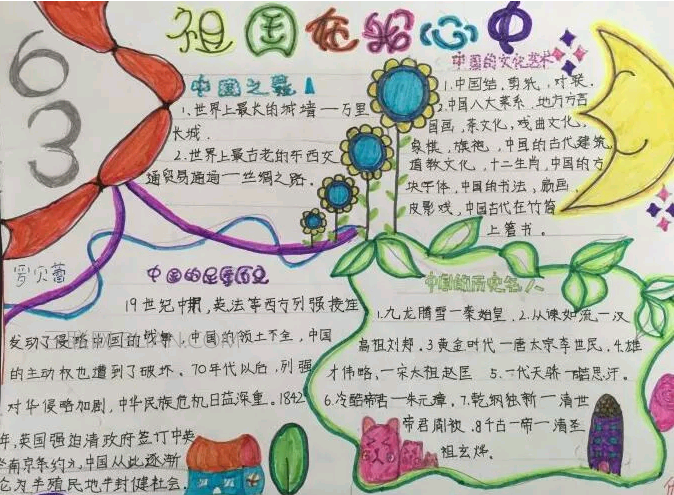 祖国在我心中
63
中国之最
1.世界上最长的城墙一万里
长城.
2.世界上最古老的东西交
通贸易通道一丝绸之路.
中国的文化艺术
1.中国结,剪纸,对联.
2.中国八大菜系,地方方言
国画,茶文化,戏曲文化,
象棋,旗袍,中国的古代建筑,
道教文化,十二生肖,中国的方
块字体,中国的书法,
皮影戏,中国古代在竹简
上著书.
罗贝蕾
中国的屈辱历史
19世纪中期,英法等西方列强接连
发动了侵略中国的战争,中国的领土不全,中国
的主动权也遭到了破坏. 70年代以后,列强
对华侵略加剧,中华民族危机日益深重。1842
年,英国强迫清政府签订中英
《南京条约》,中国从此逐渐
沦为半殖民地半封建社会.
中国的历史名人
1.九龙腾雪一秦始皇, 2.从谏如流一汉
高祖刘邦. 3黄金时代一唐太宗李世民, 4.雄
才伟略,一宋太祖赵匡 5.一代天骄一思汗。
6,冷酷帝君一朱元璋, 7.乾纲独断一清世
帝君周 .8千古一帝一清圣
祖玄烨.